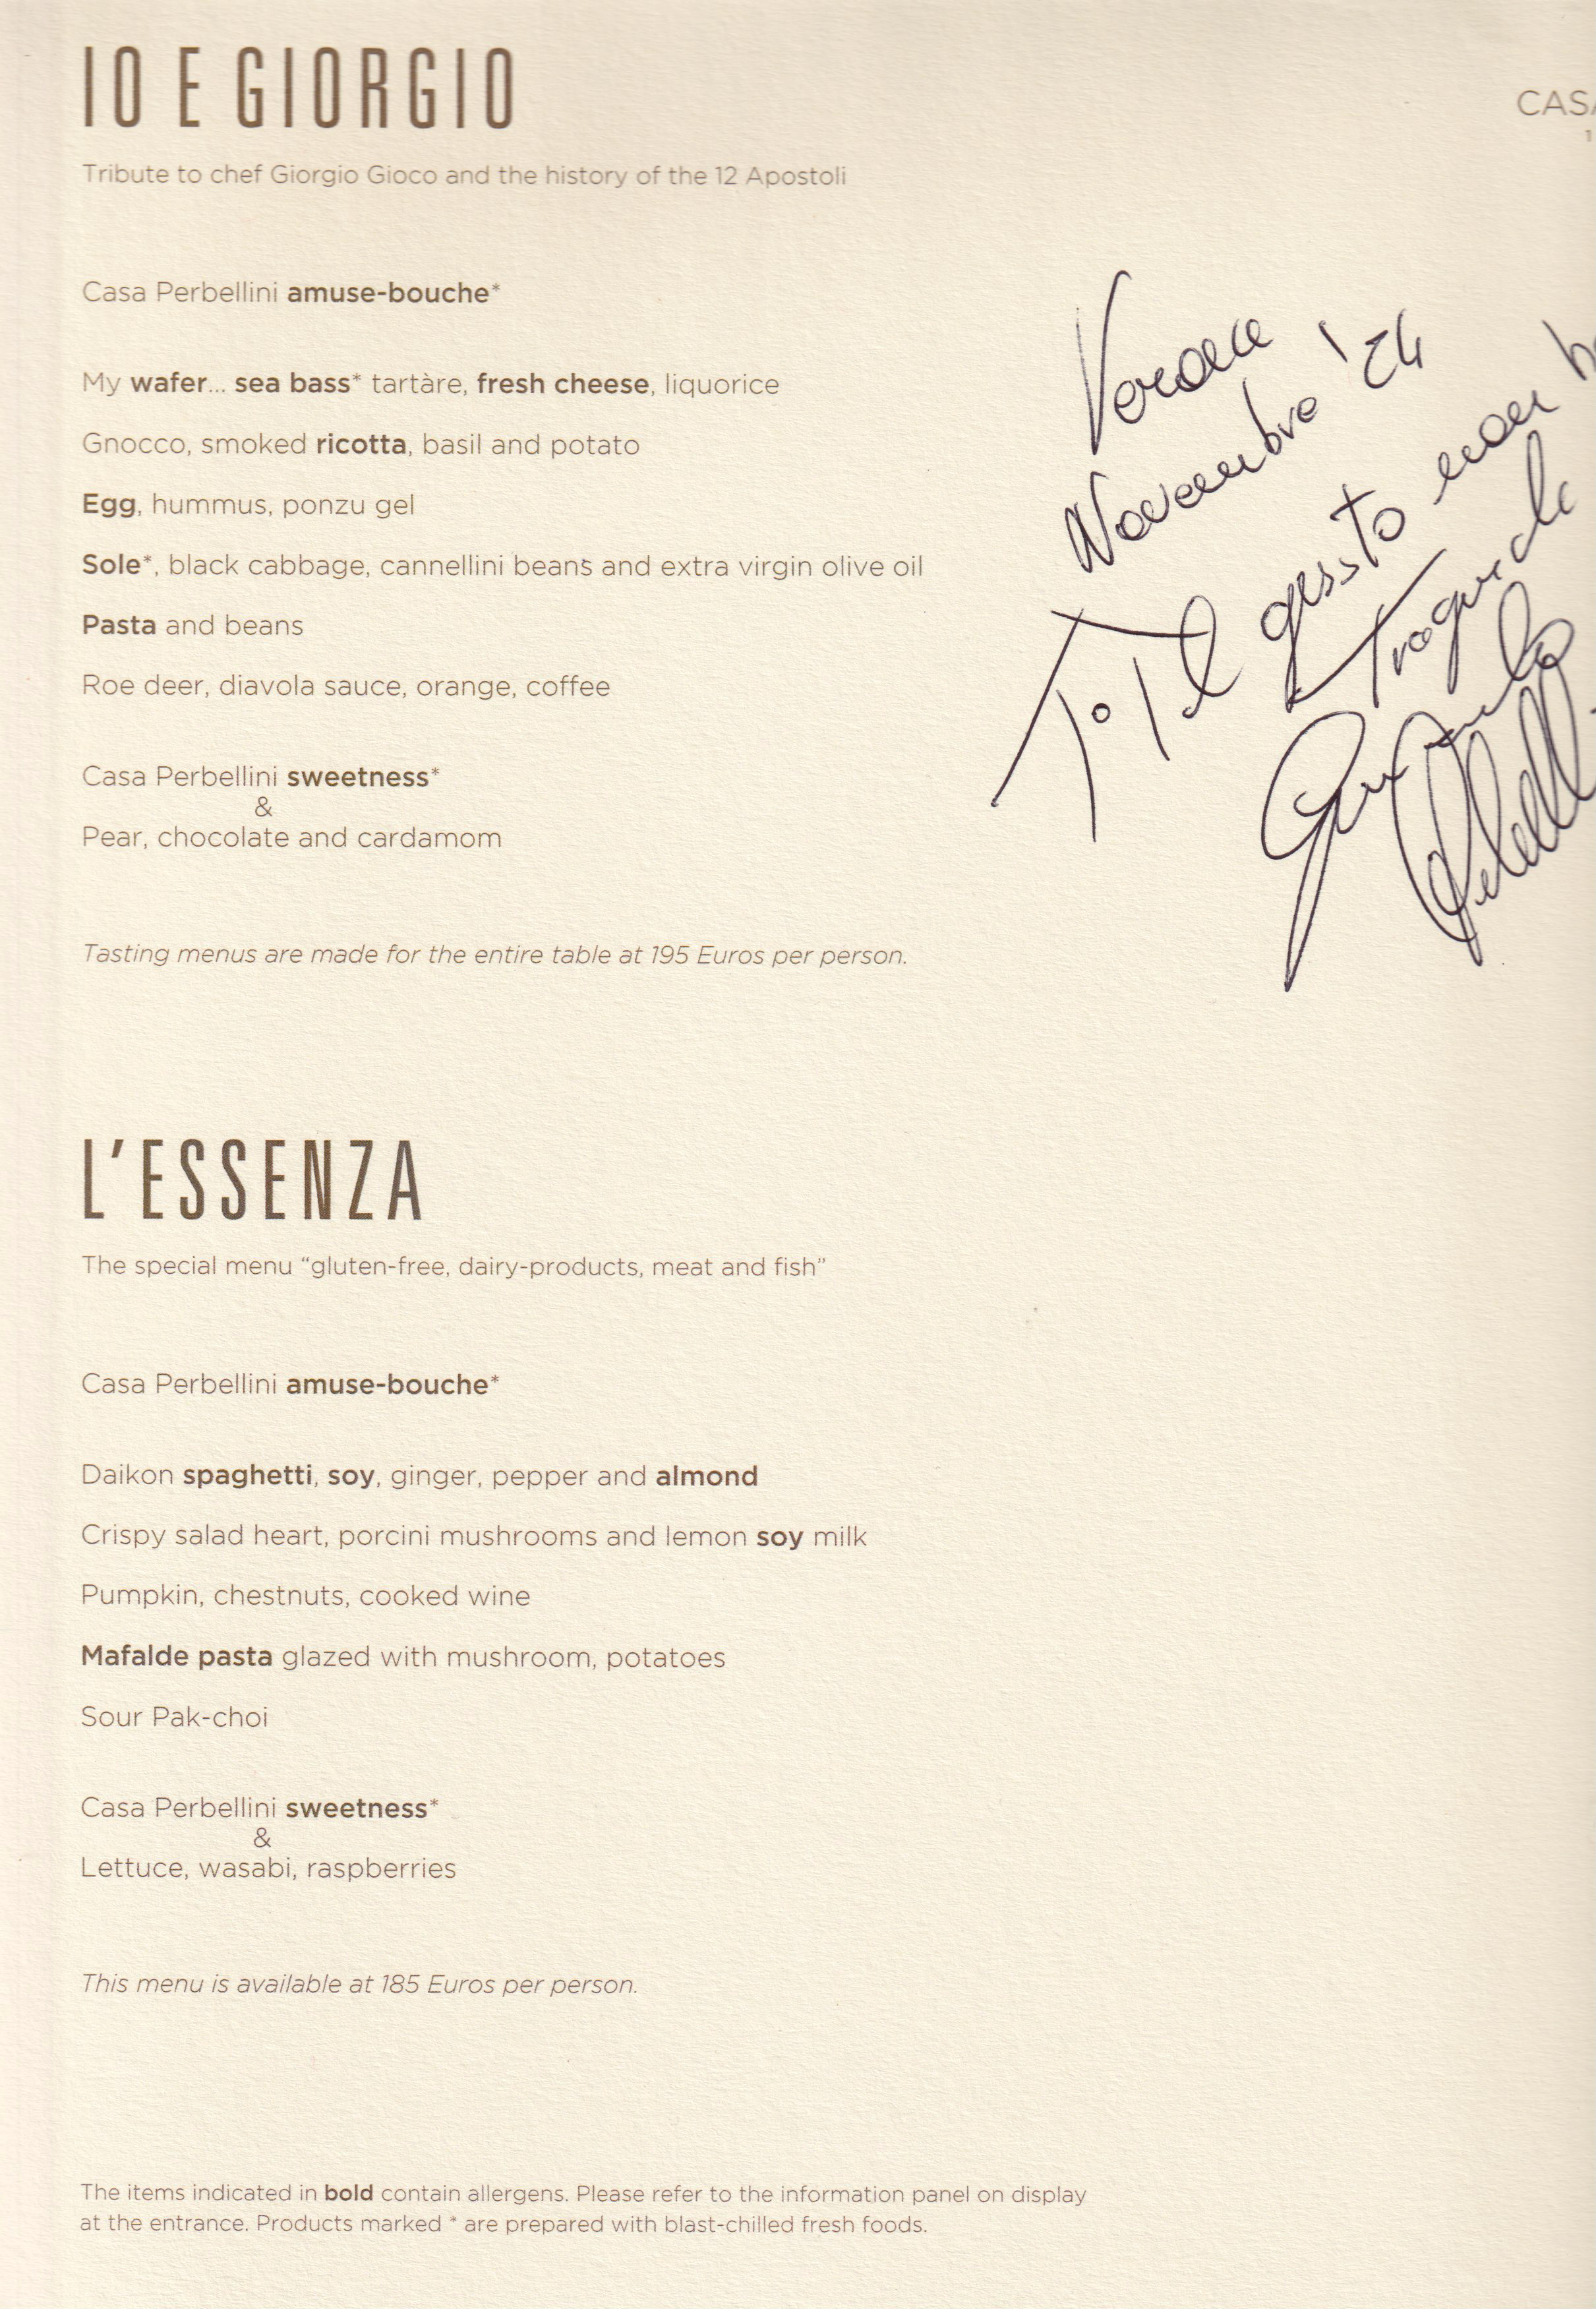 IO E GIORGIO
CASA
1
Tribute to chef Giorgio Gioco and the history of the 12 Apostoli
Casa Perbellini amuse-bouche*
My wafer... sea bass* tartàre, fresh cheese, liquorice
Gnocco, smoked ricotta, basil and potato
Egg, hummus, ponzu gel
Sole*, black cabbage, cannellini beans and extra virgin olive oil
Pasta and beans
Roe deer, diavola sauce, orange, coffee
Casa Perbellini sweetness*
&
Pear, chocolate and cardamom
Tasting menus are made for the entire table at 195 Euros per person.
Verona
Novembre '24
Il gusto non h
L'ESSENZA
The special menu “gluten-free, dairy-products, meat and fish”
Casa Perbellini amuse-bouche*
Daikon spaghetti, soy, ginger, pepper and almond
Crispy salad heart, porcini mushrooms and lemon soy milk
Pumpkin, chestnuts, cooked wine
Mafalde pasta glazed with mushroom, potatoes
Sour Pak-choi
Casa Perbellini sweetness*
&
Lettuce, wasabi, raspberries
This menu is available at 185 Euros per person.
The items indicated in bold contain allergens. Please refer to the information panel on display
at the entrance. Products marked * are prepared with blast-chilled fresh foods.